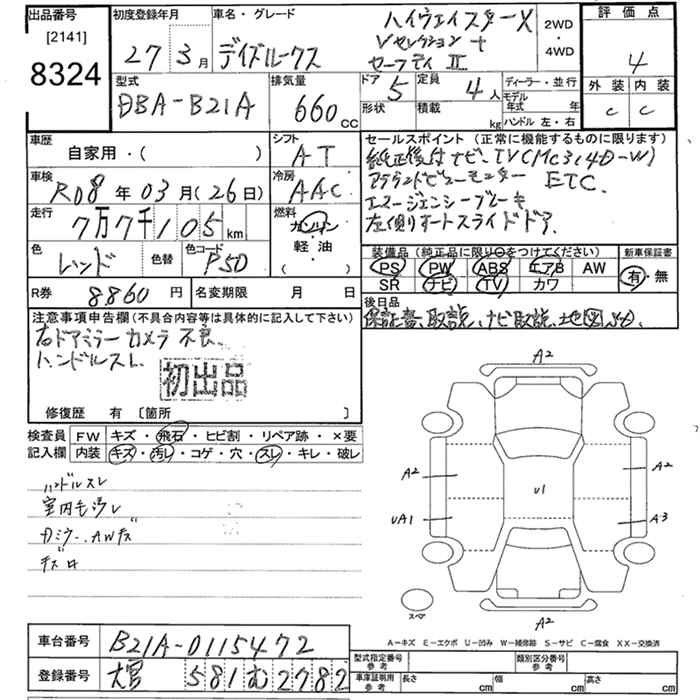 出品番号
[2141]
8324
初度登録年月
27年3月
車名・グレード
デイズルークス
ハイウェイスターX
Vセレクション+
セーフティII
2WD
・
4WD
評価点
4
外装 内装
C C
型式
DBA-B21A
排気量
660 CC
ドア 5
定員 4人
形状
積載 kg
ディーラー・並行
モデル年式 年
ハンドル 左・右
車歴
自家用・( )
シフト
AT
車検
R08年03月(26日)
冷房
AAC
走行
7万7千105km
燃料
ガソリン
軽油
( )
色
レッド
色替
色コード
P50
R券
8860円
名変期限 月 日
セールスポイント(正常に機能するものに限ります)
ETC.
エマージェンシーブレーキ
左側オートスライドドア.
装備品(純正品に限り○をつけてください)
PS PW ABS エアB AW
SR ナビ TV カワ
新車保証書
有・無
後日品
保証書、取説、ナビ取説、
注意事項申告欄(不具合内容等は具体的に記入して下さい)
右ドアミラーカメラ不良.
ハンドルスレ.
初出品
修復歴 有 [箇所 ]
検査員記入欄
FW キズ・飛石・ヒビ割・リペア跡・×要
内装 キズ・汚レ・コゲ・穴・スレ・キレ・破レ
ハンドルスレ
室内毛汚レ
A2
A2
A2
U1
UA1
A3
スペア
A2
A-キズ E-エクボ U-凹み W-補修跡 S-サビ C-腐食 XX-交換済
車台番号
B21A-0115472
登録番号
大宮 581 む 2782
型式指定番号
参考
類別区分番号
参考
車庫証明用
参考
長さ cm
幅 cm
高さ cm